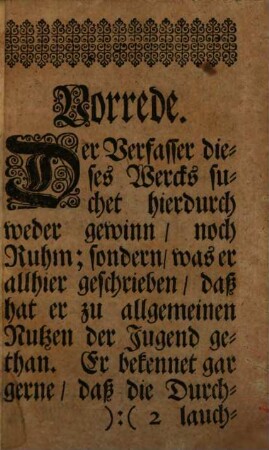 Vorrede.
Der Verfasser die-
ses Wercks su-
chet hierdurch
weder gewinn / noch
Ruhm; sondern / was er
allhier geschrieben / daß
hat er zu allgemeinen
Nutzen der Jugend ge-
than. Er bekennet gar
gerne / daß die Durch-
):( 2 lauch-